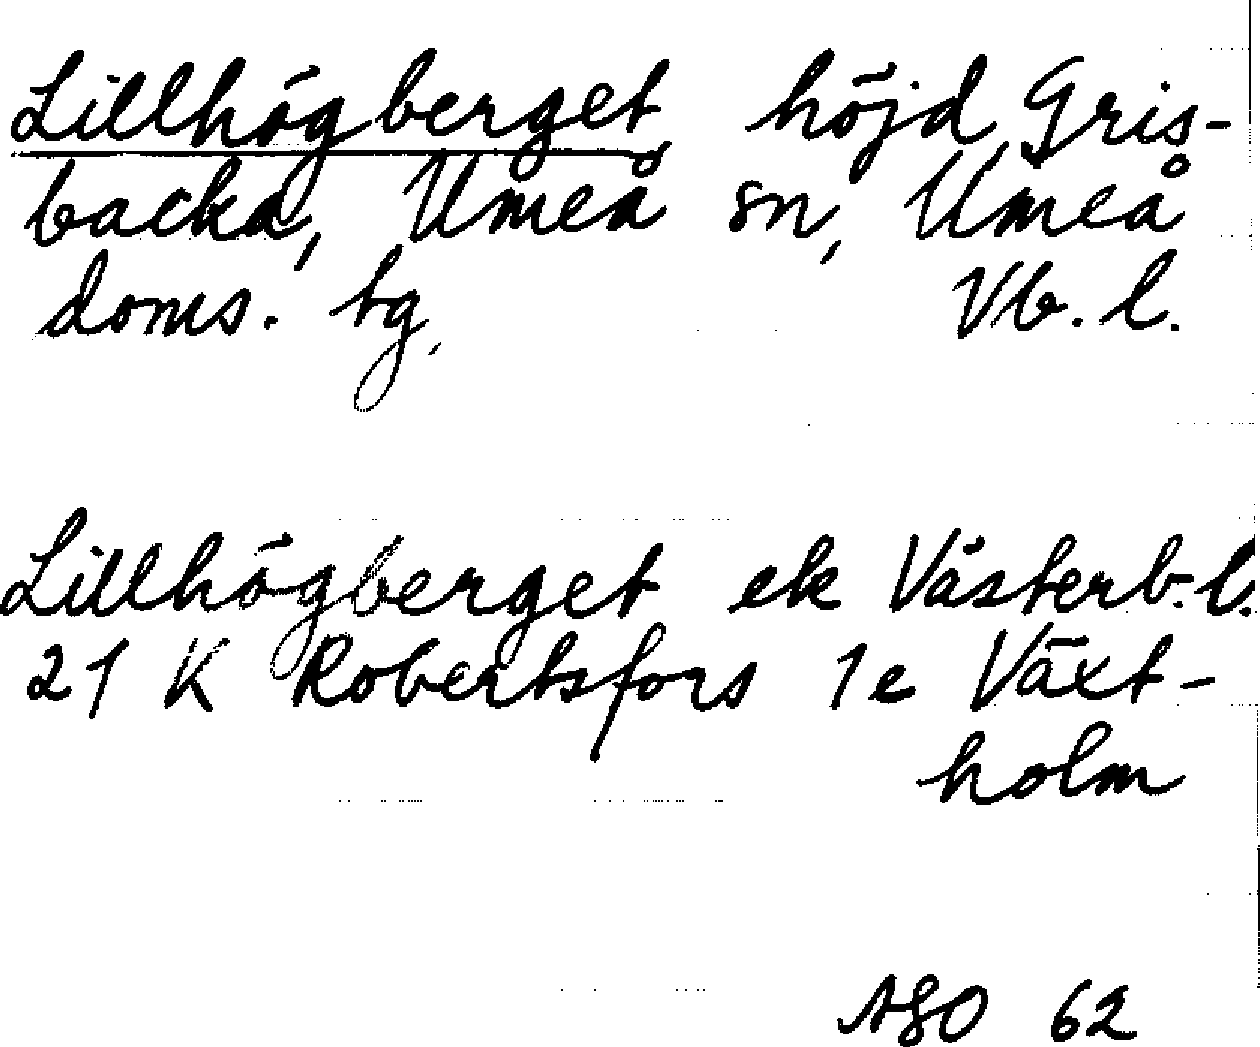 Lillhögberget höjd Gris-
backa, Umeå sn, Umeå
doms. tg. Vb. l.
Lillhögberget ek Västerb. l.
21 K Robertsfors 1e Växt-
holm
ASO 62